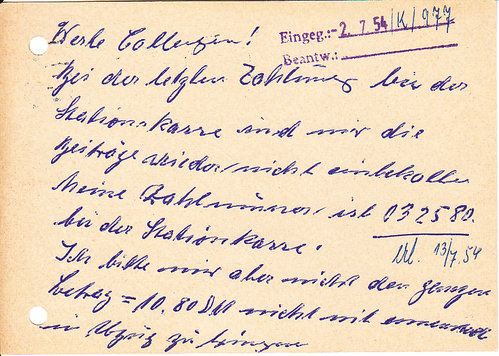 Werte Collegen!
Eingeg.: - 2. 7. 54 /K/977
Beantw.:
Bei der letzten Zahlung bei der
Stationskasse sind mir die
Beiträge wieder nicht einbehalten
Meine Zahlnummer ist 032580.
bei der Stationskasse.
erl. 13/7.54
Ich bitte mir aber nicht den ganzen
Betrag = 10.80 DM nicht mit
in Abzug zu bringen